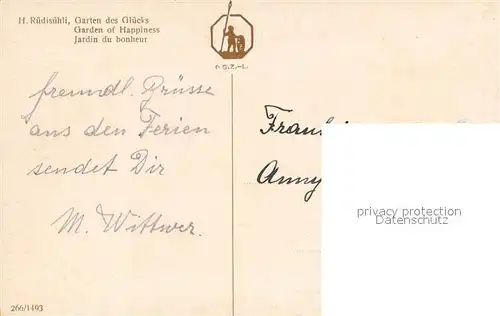 H. Rüdisühli, Garten des Glücks
Garden of Happiness
Jardin du bonheur
freundl. Grüsse
aus den Ferien
sendet Dir
M. Wittwer.
Anny
privacy protection
watermark
266/1493